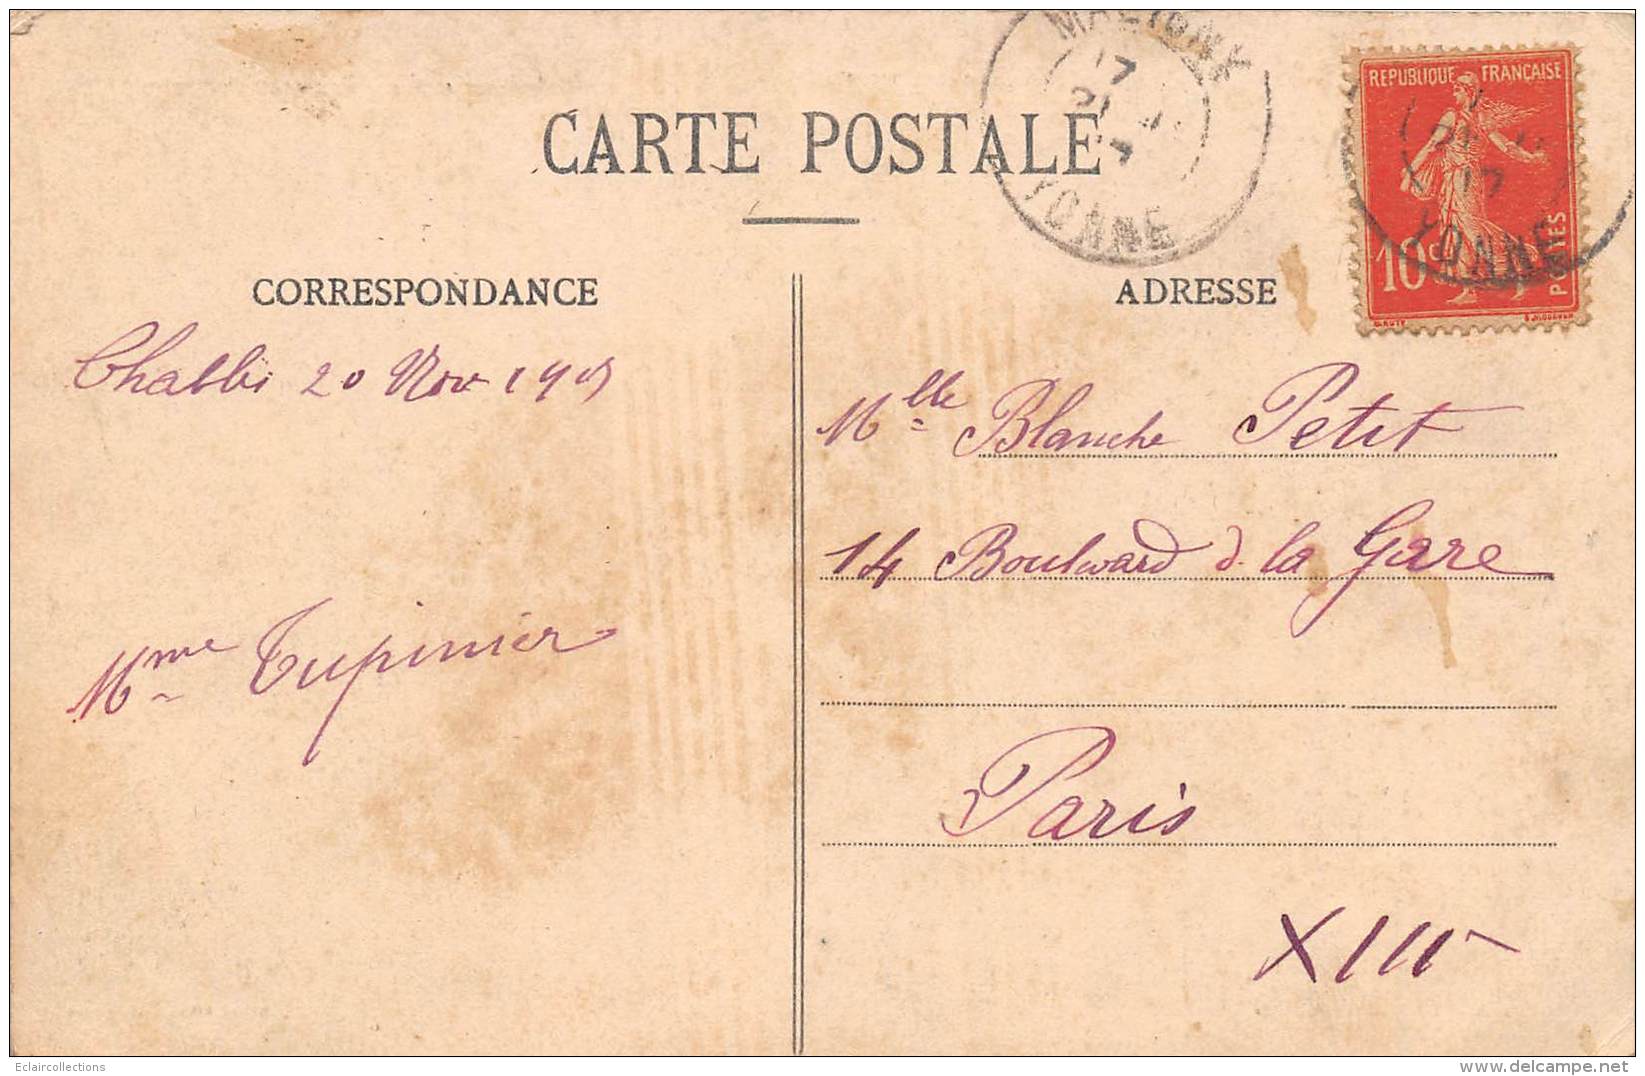 CARTE POSTALE
MALIGNY
17
21
YONNE
REPUBLIQUE FRANÇAISE
10c
POSTES
21
17
YONNE
CORRESPONDANCE
ADRESSE
Chablis 20 Nov
Mlle Blanche Petit
14 Boulward d. la Gare
Mme Tupinier
Paris
XIII
Eclaircollections
delcampe.net